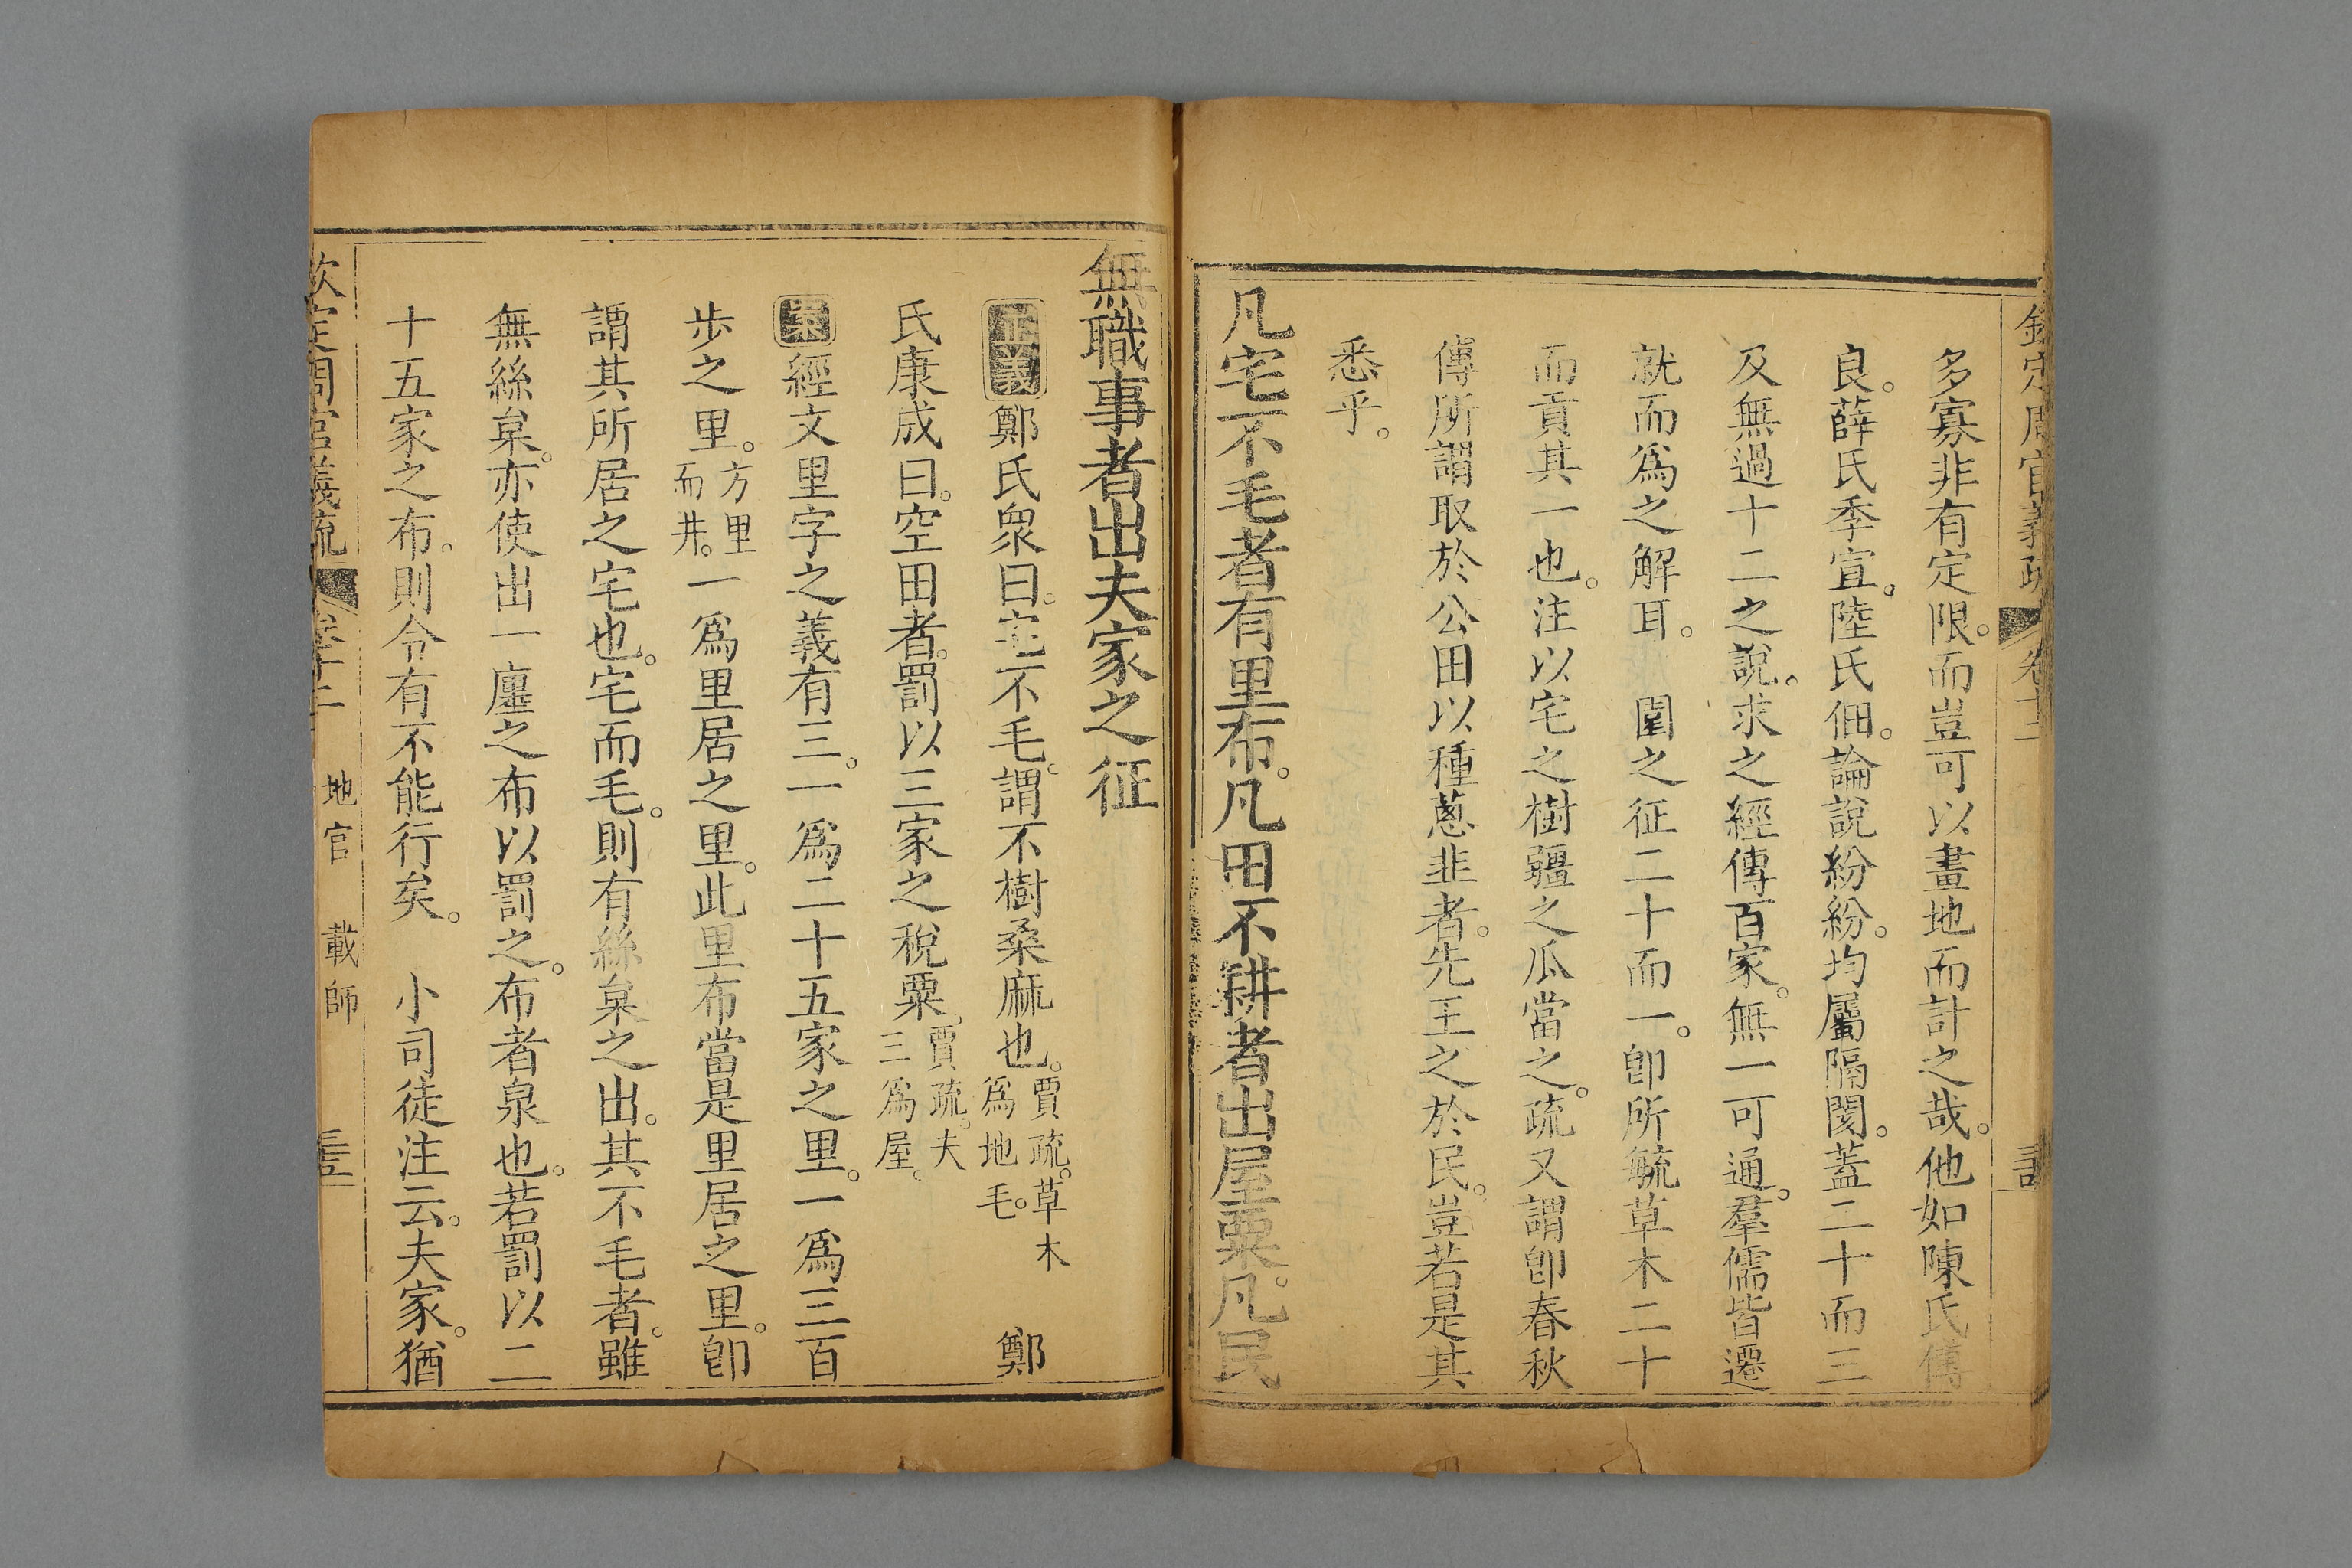 欽定周官義疏 卷十二
多寡非有定限。而豈可以畫地而計之哉。他如陳氏傅
良。薛氏季宣。陸氏佃。論說紛紛。均屬隔閡。蓋二十而三
及無過十二之說。求之經傳百家。無一可通。羣儒皆遷
就而爲之解耳。 園之征二十而一。卽所毓草木二十
而貢其一也。注以宅之樹疆之瓜當之。疏又謂卽春秋
傳所謂取於公田以種蔥韭者。先王之於民。豈若是其
悉乎。
凡宅不毛者有里布。凡田不耕者出屋粟。凡民
無職事者出夫家之征
正義鄭氏衆曰。宅不毛。謂不樹桑麻也。賈疏。草木爲地毛。 鄭
氏康成曰。空田者。罰以三家之稅粟。賈疏。夫三爲屋。
案經文里字之義有三。一爲二十五家之里。一爲三百
步之里。方里而井。一爲里居之里。此里布當是里居之里。卽
謂其所居之宅也。宅而毛。則有絲枲之出。其不毛者。雖
無絲枲。亦使出一廛之布以罰之。布者泉也。若罰以二
十五家之布。則令有不能行矣。 小司徒注云。夫家。猶
欽定周官義疏 卷十二 地官 載師